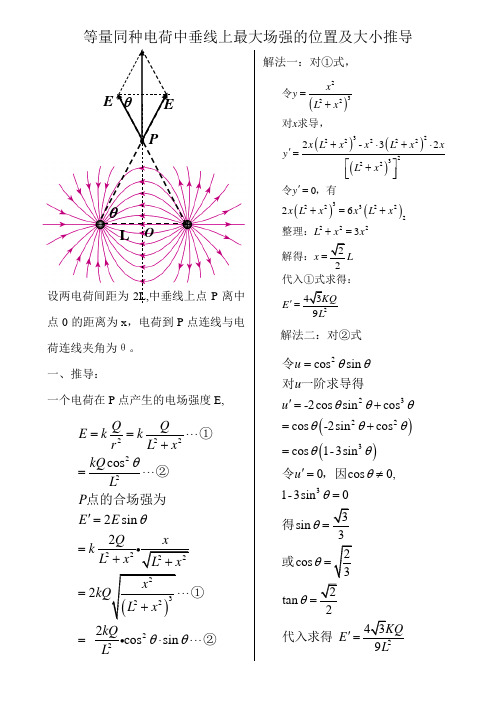 等量同种电荷中垂线上最大场强的位置及大小推导
E θ E
P
θ
L O
设两电荷间距为 2L,中垂线上点 P 离中
点 0 的距离为 x，电荷到 P 点连线与电
荷连线夹角为 θ 。
一、推导:
一个电荷在 P 点产生的电场强度 E,
E = k Q/r² = k Q/(L² + x²) ⋯①
= kQcos²θ/L² ⋯②
P点的合场强为
E′ = 2E sinθ
= k 2Q/(L² + x²) • x/√(L² + x²)
= 2kQ √(x²/(L² + x²)³) ⋯①
= 2kQ/L² • cos²θ · sinθ ⋯②
解法一：对①式,
令y = x²/(L² + x²)³
对x求导,
y′ = (2x(L² + x²)³ - x² · 3(L² + x²)² · 2x)/[(L² + x²)³]²
令y′ = 0，有
2x(L² + x²)³ = 6x³(L² + x²)₂
整理：L² + x² = 3x²
解得：x = √2/2 L
代入①式求得：
E′ = 4√3KQ/9L²
解法二：对②式
令u = cos²θ sinθ
对u一阶求导得
u′ = -2cosθ sin²θ + cos³θ
= cosθ(-2sin²θ + cos²θ)
= cosθ(1-3sin³θ)
令u′ = 0，因cosθ ≠ 0,
1-3sin³θ = 0
得sinθ = √3/3
或cosθ = √(2/3)
tanθ = √2/2
代入求得 E′ = 4√3KQ/9L²